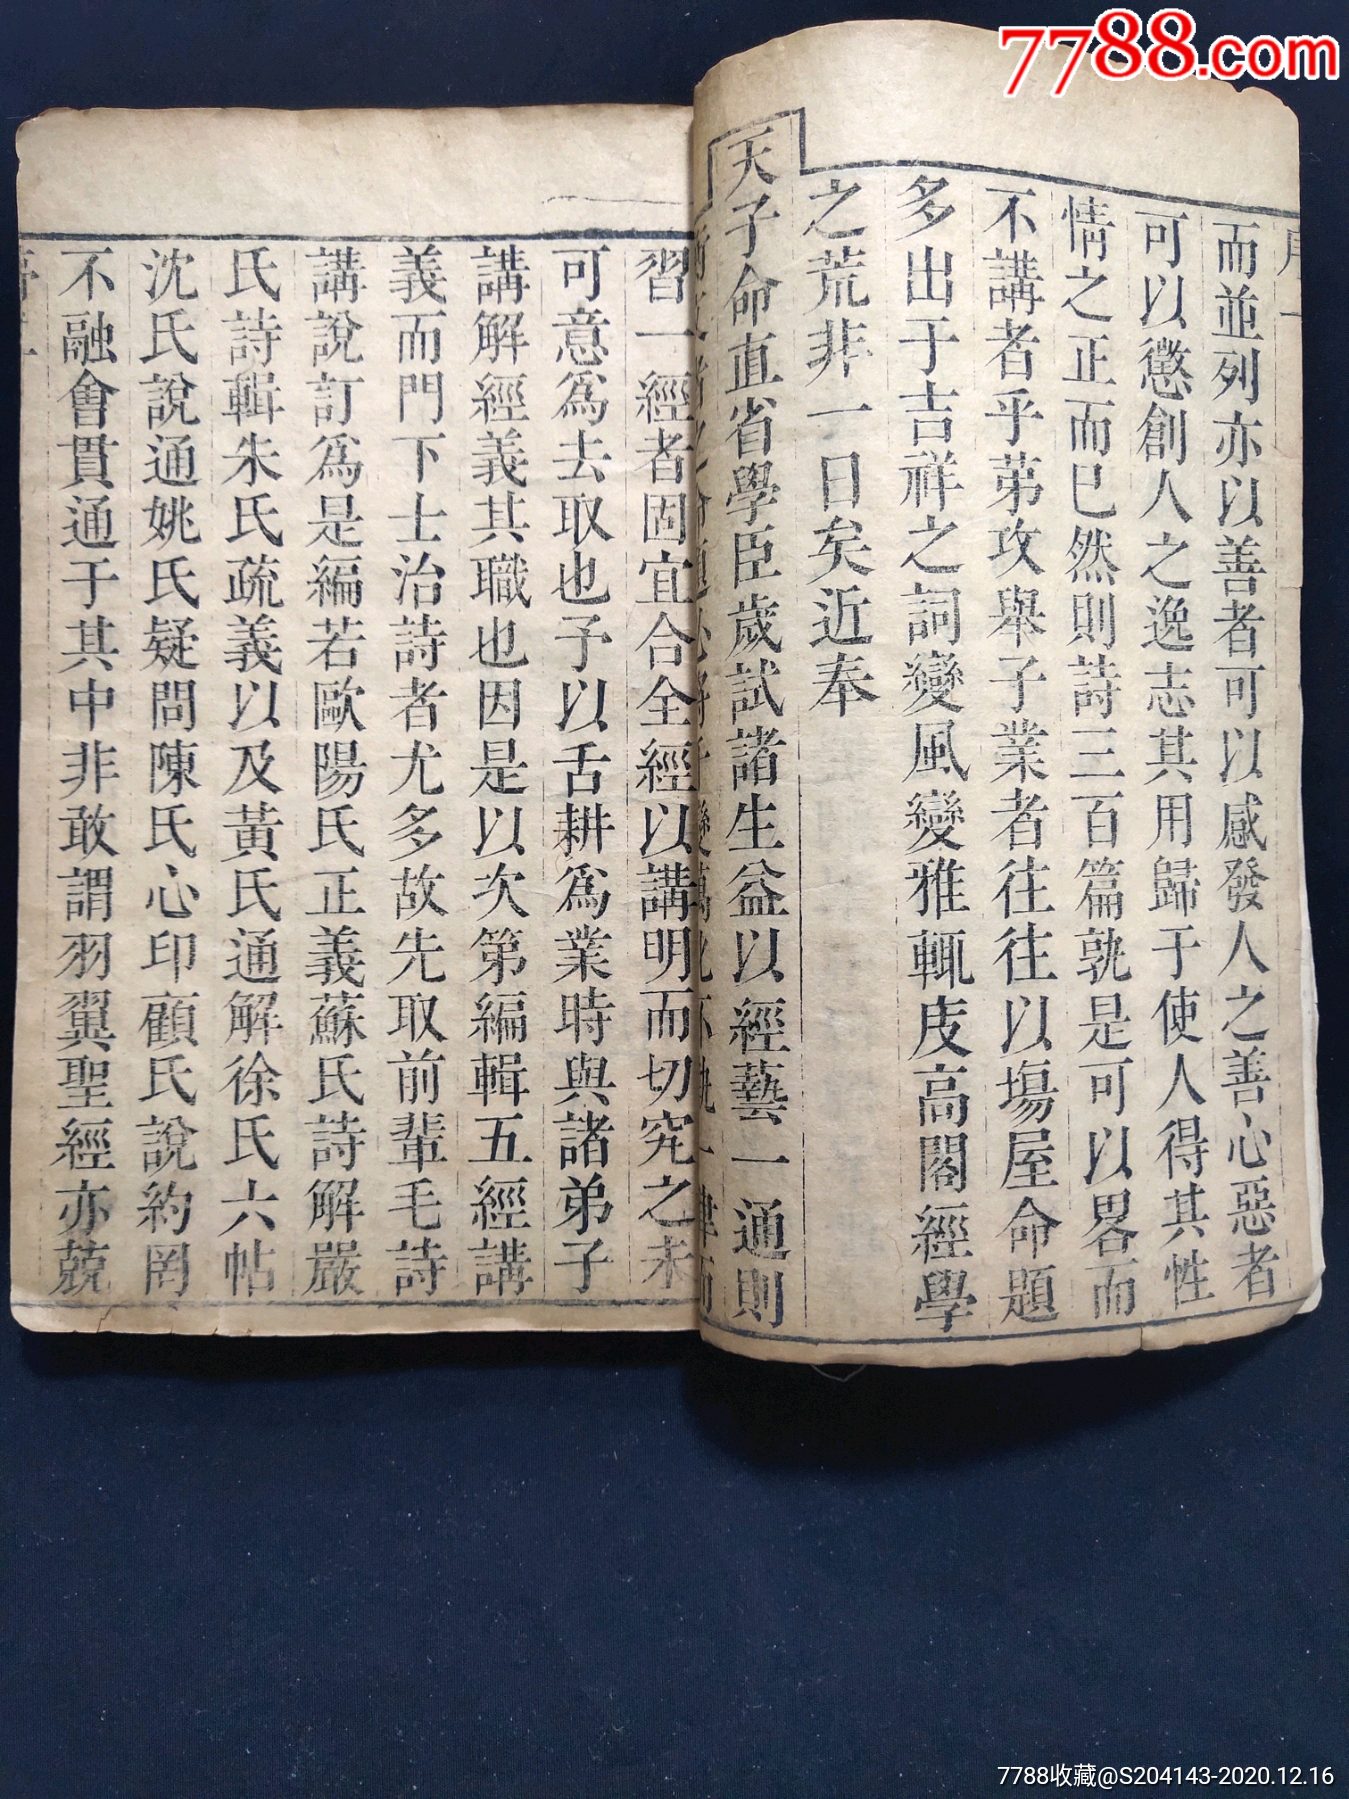 7788.com
而並列亦以善者可以感發人之善心惡者
可以懲創人之逸志其用歸于使人得其性
情之正而巳然則詩三百篇孰是可以畧而
不講者乎苐攻舉子業者往往以塲屋命題
多出于吉祥之詞變風變雅輒庋高閣經學
之荒非一日矣近奉
天子命直省學臣歲試諸生益以經藝一通則
習一經者固宜合全經以講明而切究之未
可意為去取也予以舌耕為業時與諸弟子
講解經義其職也因是以次第編輯五經講
義而門下士治詩者尤多故先取前輩毛詩
講說訂為是編若歐陽氏正義蘇氏詩解嚴
氏詩輯朱氏疏義以及黃氏通解徐氏六帖
沈氏說通姚氏疑問陳氏心印顧氏說約罔
不融會貫通于其中非敢謂羽翼聖經亦兢
7788收藏@S204143-2020.12.16